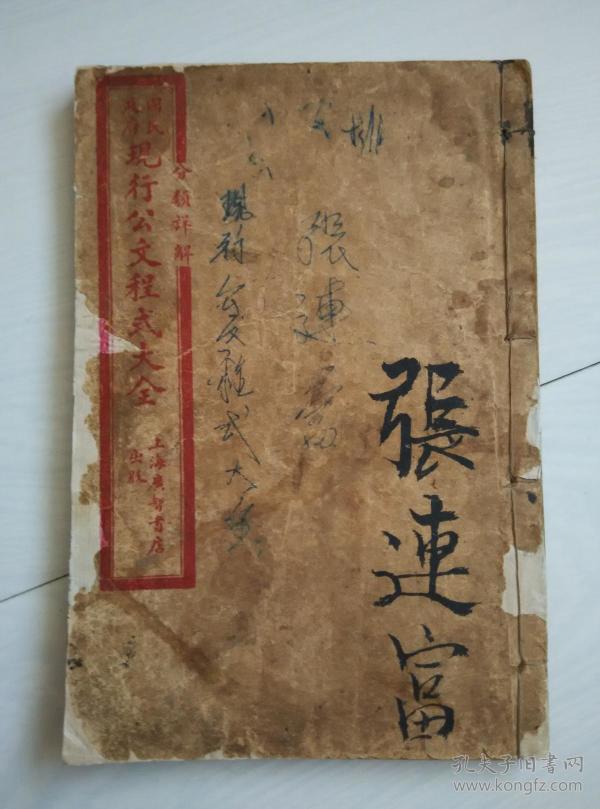 張連富
張連富
排
現行公文程式大全
分類詳解
國民政府
現行公文程式大全
上海廣智書店
出版
孔夫子旧书网
www.kongfz.com